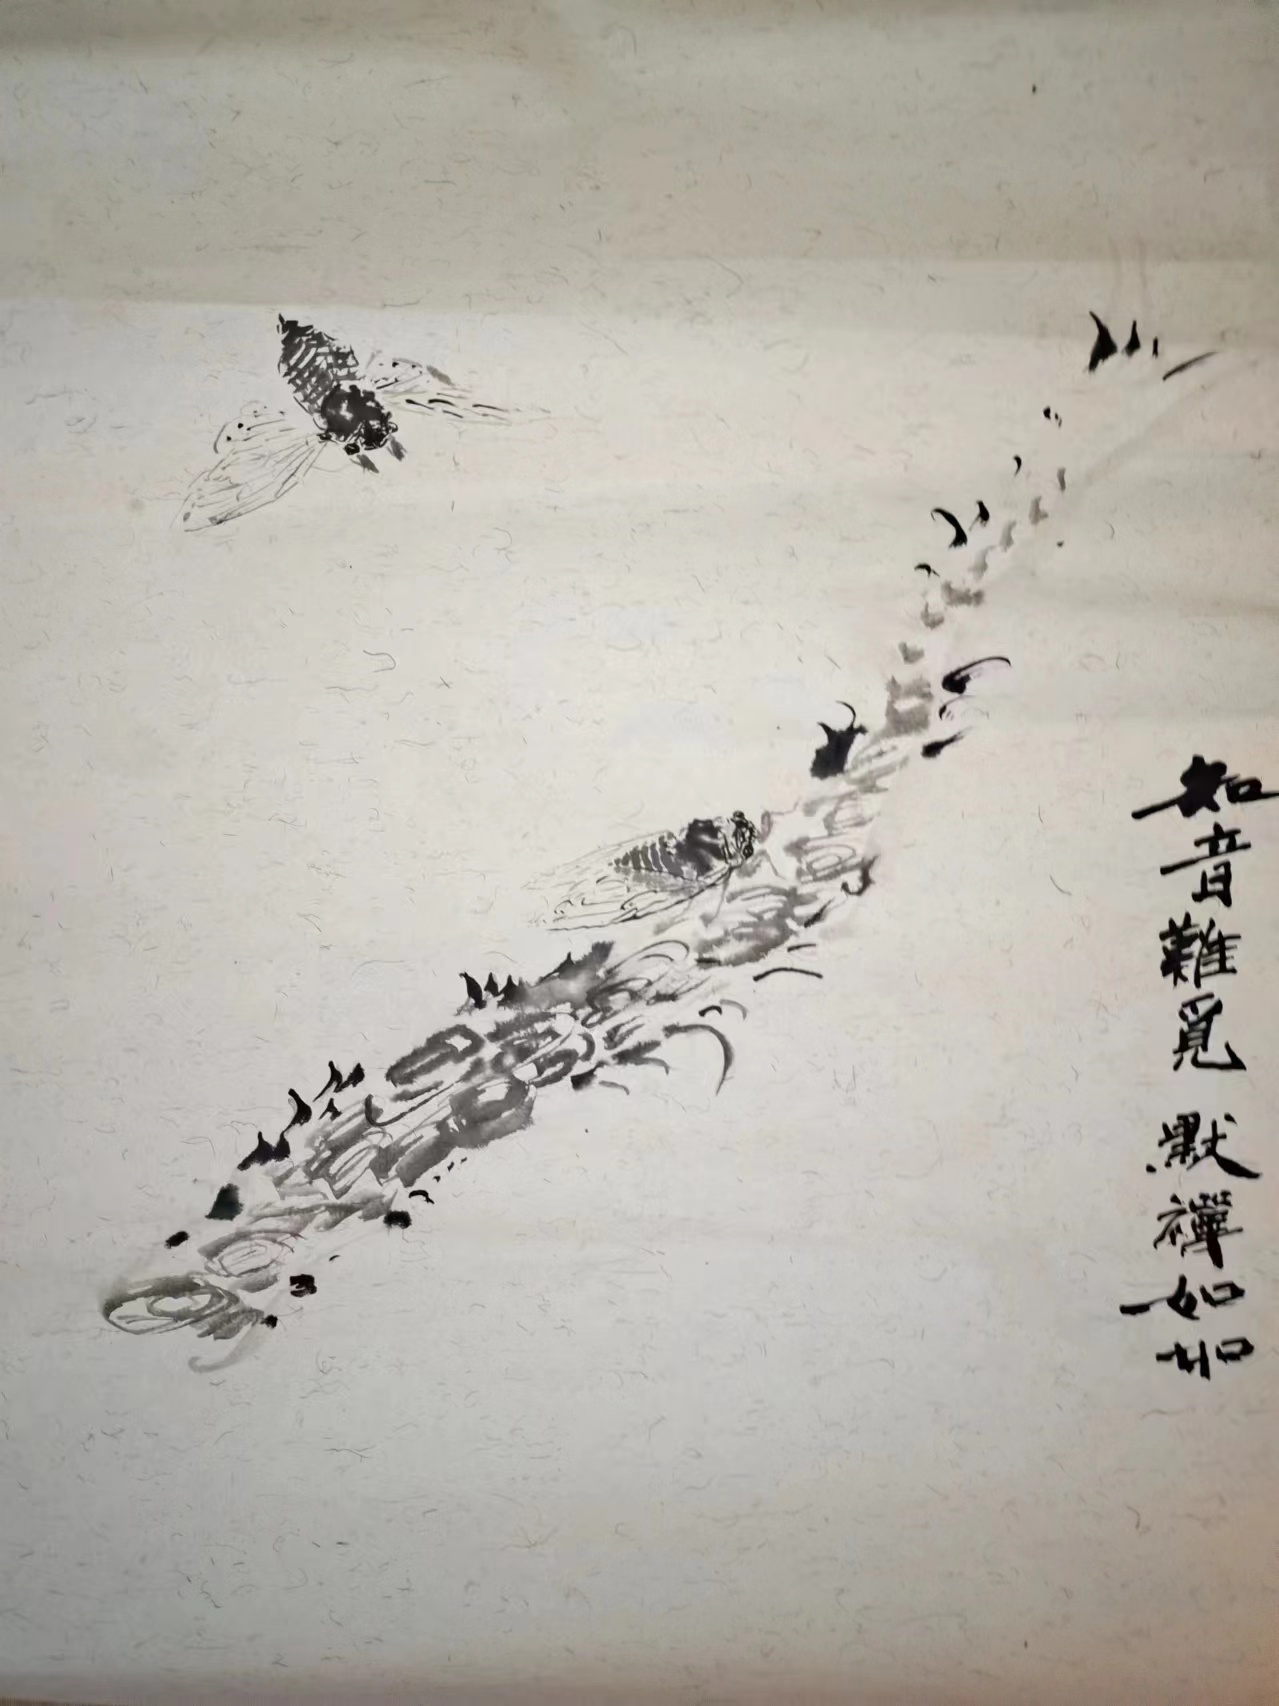 知音難覓 默禪如如